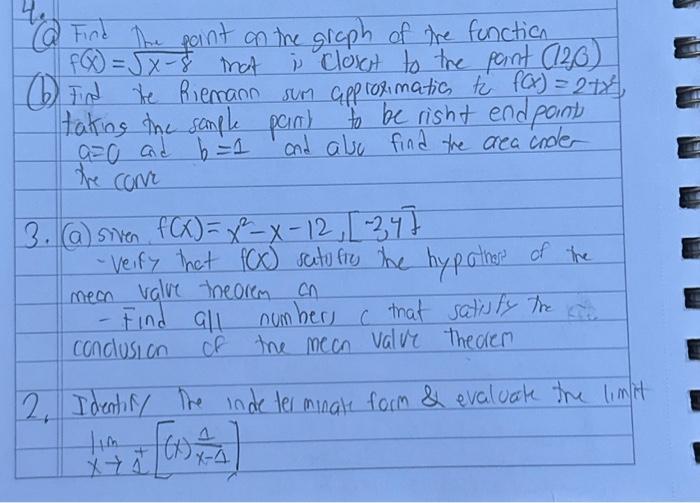 4.
(a) Find the point on the graph of the function
f(x) = √x-8 that is closest to the point (12,0)
(b) Find the Riemann sum approximatic to f(x) = 2+x²,
taking the sample point to be right endpoint
a=0 and b=1 and also find the area under
the curve
3. (a) given f(x) = x²-x-12, [-3,4]
- verify that f(x) satisfies the hypothesis of the
mean value theorem on
- Find all numbers c that satisfy the
conclusion of the mean value theorem
2. Identify the indeterminate form & evaluate the limit
lim x→1⁺ [(x)^1/(x-1)]